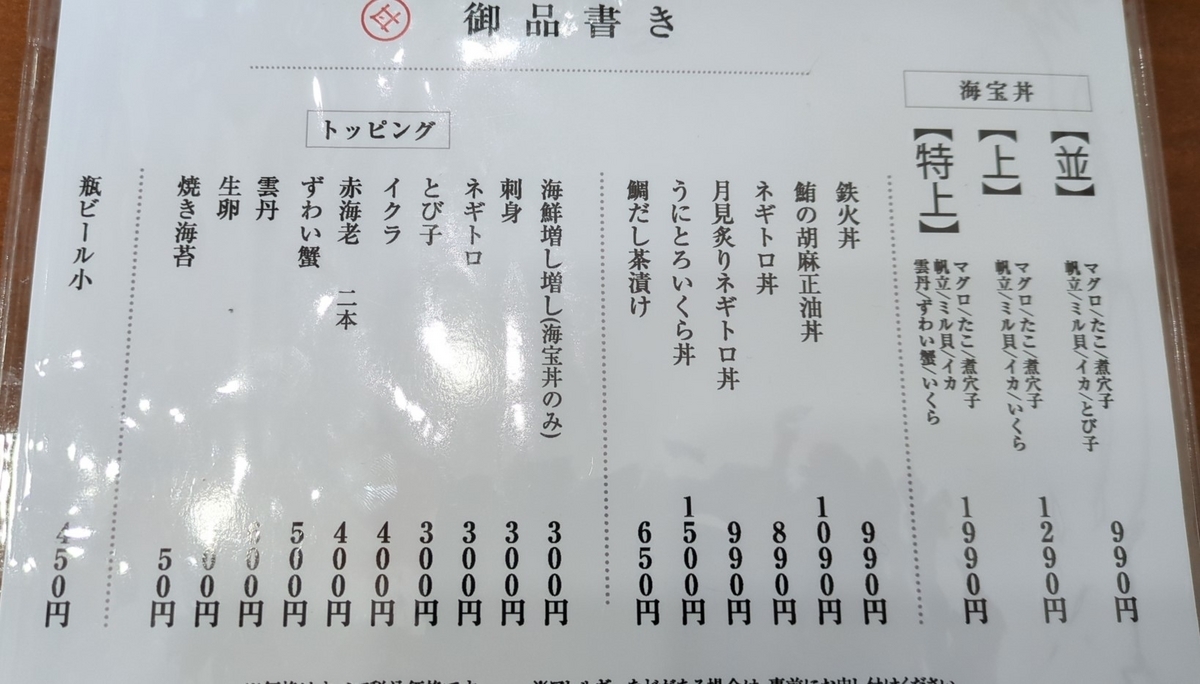 御品書き
海宝丼
【並】
マグロ/たこ/煮穴子
帆立/ミル貝/イカ/とび子
990円
【上】
マグロ/たこ/煮穴子
帆立/ミル貝/イカ/いくら
1290円
【特上】
マグロ/たこ/煮穴子
帆立/ミル貝/イカ
雲丹/ずわい蟹/いくら
1990円
鉄火丼 990円
鮪の胡麻正油丼 1090円
ネギトロ丼 890円
月見炙りネギトロ丼 990円
うにとろいくら丼 1500円
鯛だし茶漬け 650円
トッピング
海鮮増し増し(海宝丼のみ) 300円
刺身 300円
ネギトロ 300円
とび子 300円
イクラ 400円
赤海老 二本 400円
ずわい蟹 500円
雲丹
生卵
焼き海苔 50円
瓶ビール小 450円